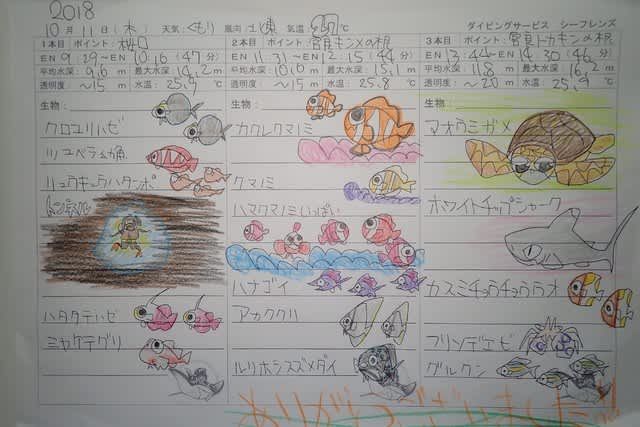 2018
10月11日(木) 天気:くもり 風向 北東 気温:27℃ ダイビングサービス シーフレンズ
1本目 ポイント:
EN 9:29〜EN 10:16(47分)
平均水深: 9.6m 最大水深: 14.2m
透明度: 〜15m 水温: 25.9℃
生物:
クロユリハゼ
リュウキュウハタンポ
トンネル
ハタタテハゼ
ミヤケテグリ
2本目 ポイント:
EN 11:31〜EN 12:15(44分)
平均水深: 10.0m 最大水深: 15.1m
透明度: 〜15m 水温: 25.8℃
生物:
カクレクマノミ
クマノミ
ハマクマノミいっぱい
ハナゴイ
アカククリ
ルリホシスズメダイ
3本目 ポイント:
EN 13:44〜EN 14:30(46分)
平均水深: 11.8m 最大水深: 16.2m
透明度: 〜20m 水温: 25.9℃
生物:
アオウミガメ
ホワイトチップシャーク
カスミチョウチョウウオ
フリソデエビ
グルクン
ありがとうございました